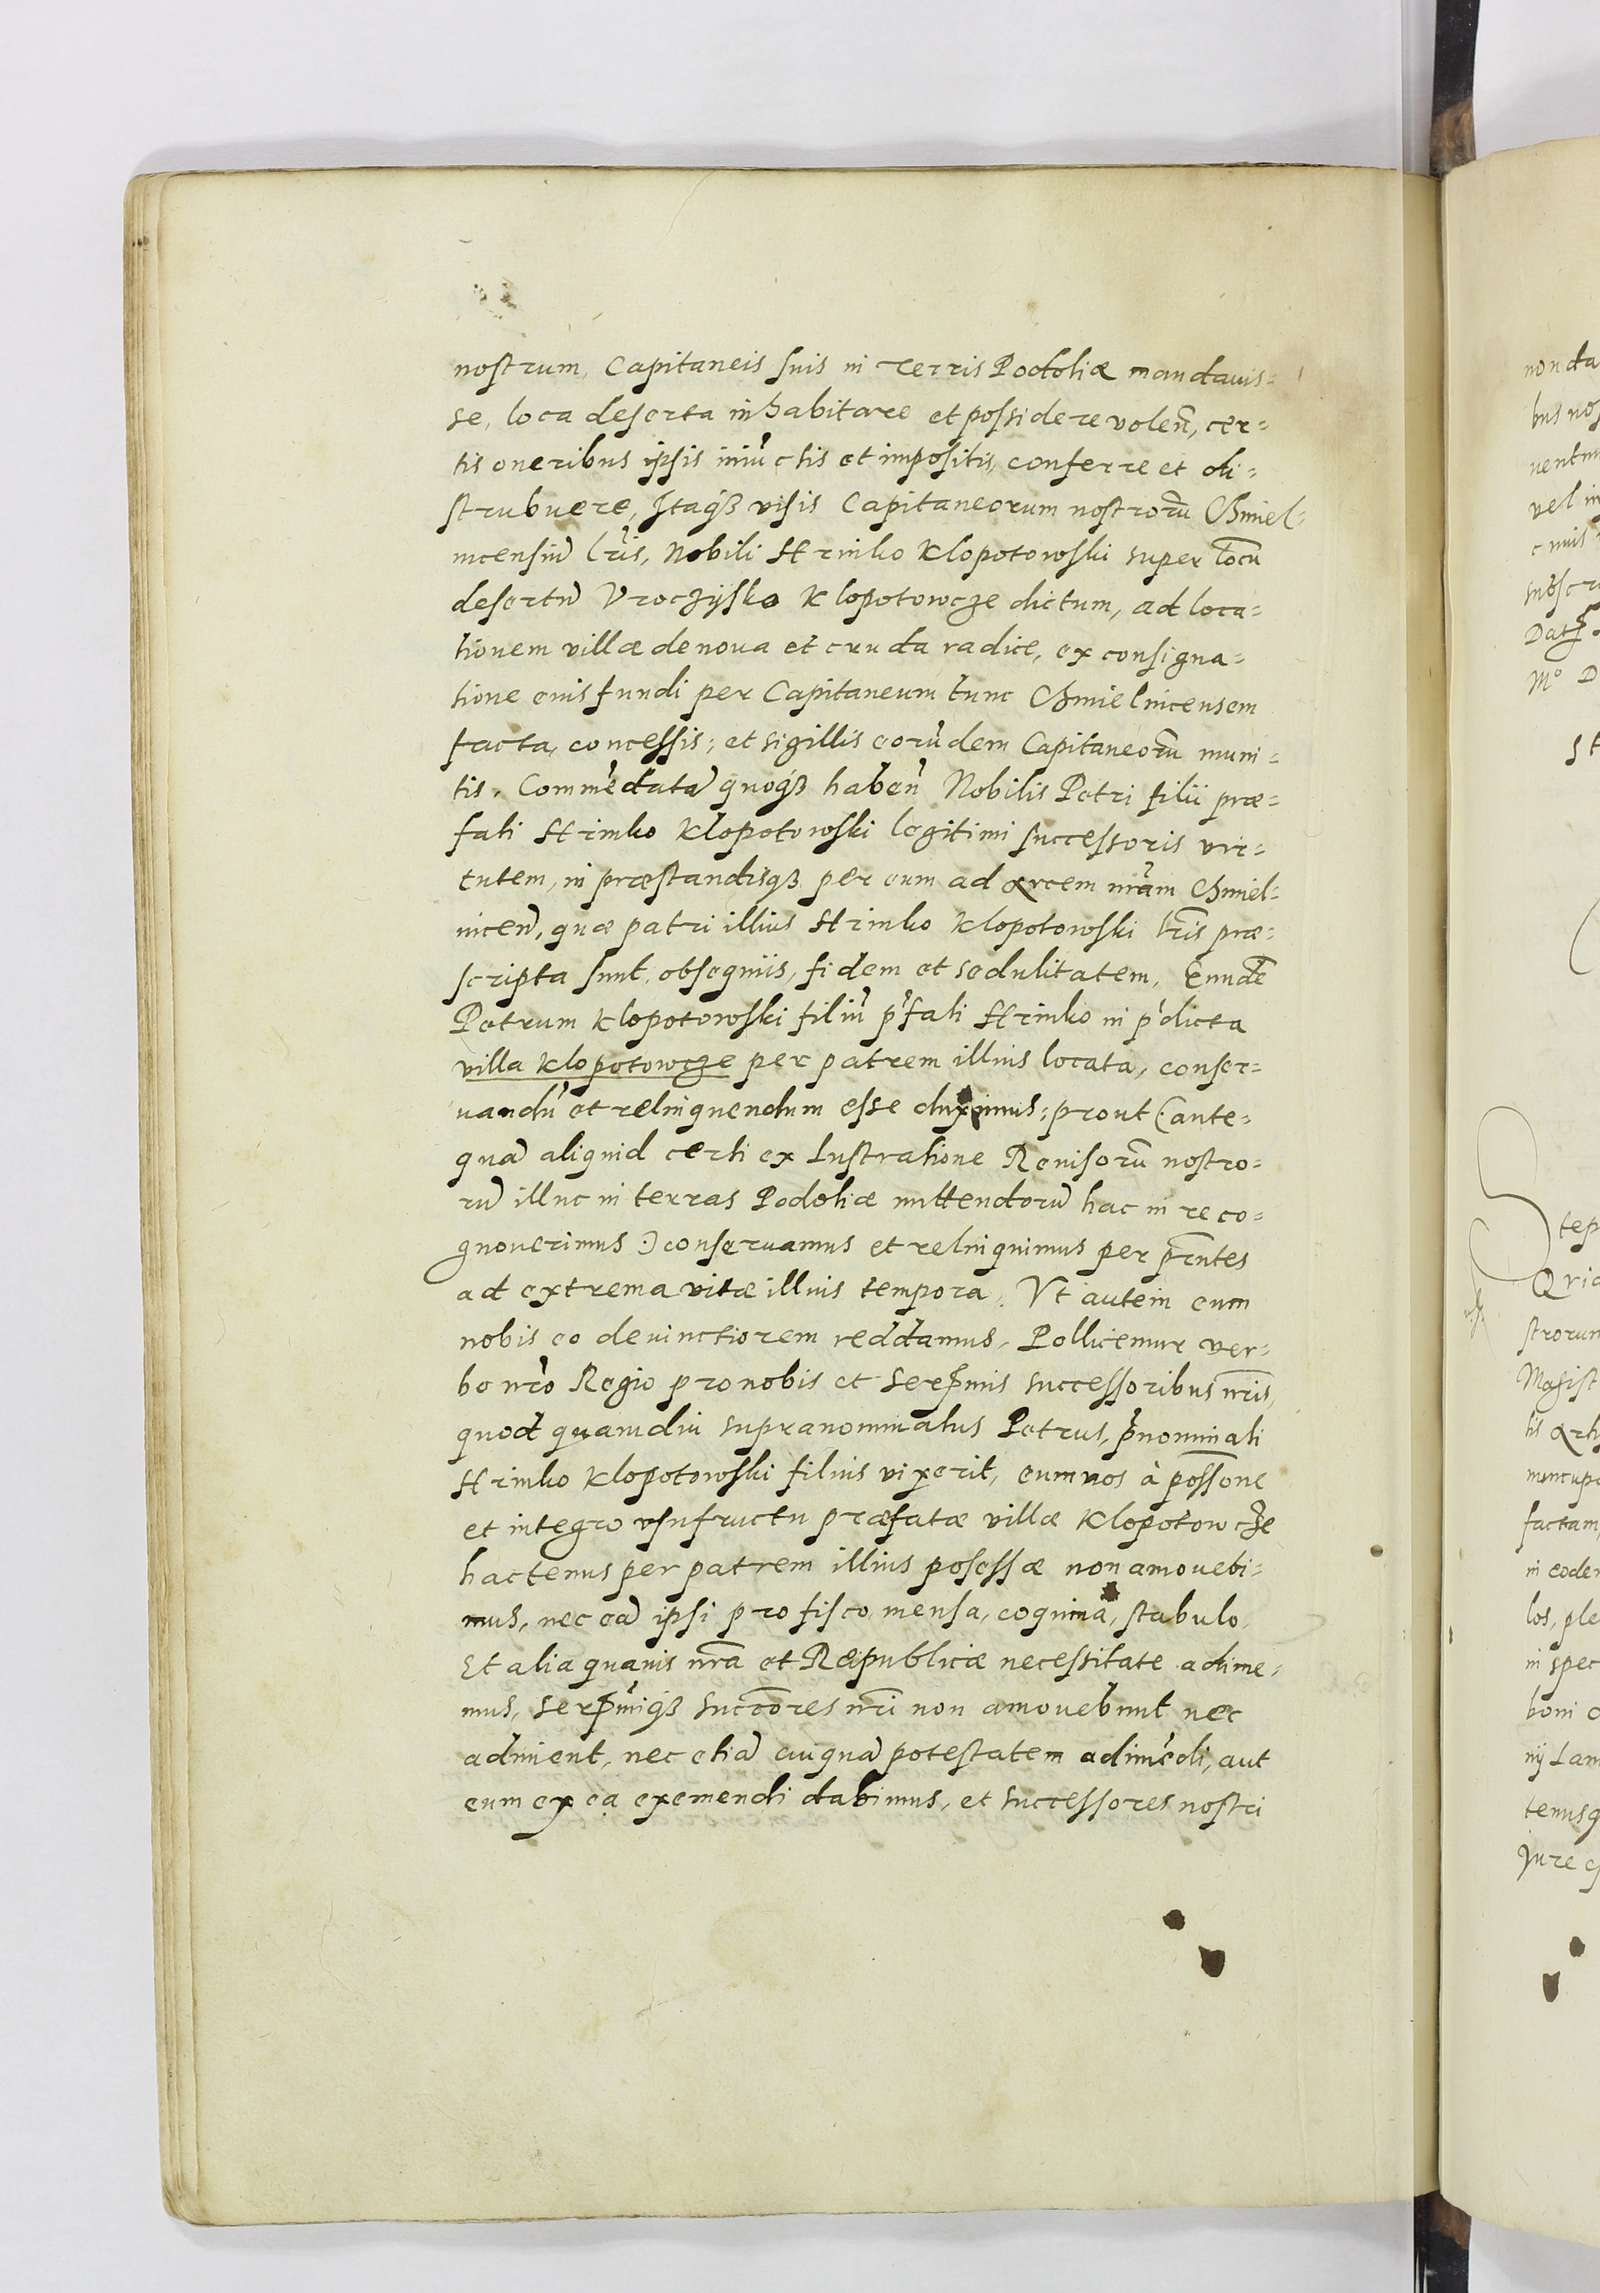 nostrum, Capitaneis suis in Terris Podoliæ mandauis=
se, loca deserta inhabitare et possidere volen̄, cer=
tis oneribus ipsis iniūctis et impositis, conferre et di=
strubuere, Itaq₃ visis Capitaneorum nostrorū Chmiel=
nicensiū lr̄is, Nobili Hrinko Klopotowski super locū
desertū Vroczÿsko Klopotowcze dictum, ad loca=
tionem villæ de noua et cruda radice, ex consigna=
tione eius fundi per Capitaneum tunc Chmielnicensem
facta, concessis; et sigillis eorūdem Capitaneorū muni=
tis. Commēdatā quoq₃ haben̄ Nobilis Petri filii præ=
fati Hrinko Klopotowski legitimi successoris vir=
tutem, in præstandisq₃ per eum ad arcem nr̄am Chmiel=
nicen̄, quæ patri illius Hrinko Klopotowski lr̄is præ=
scripta sunt, obsequiis, fidem et sedulitatem, Eundē
Petrum Klopotowski filiū p̄fati Hrinko in p̄dicta
villa Klopotowcze per patrem illius locata, conser=
uandū et relinquendum esse duximus; prout (ante=
quā aliquid certi ex Lustratione Reuisorū nostro=
rū illuc in terras Podoliæ mittendorū hac in re co=
gnouerimus) conseruamus et relinquimus per pr̄ntes
ad extrema vitæ illius tempora. Vt autem eum
nobis eo deuinctiorem reddamus, Pollicemur ver=
bo nr̄o Regio pro nobis et Serēmis successoribus nr̄is,
quod quamdiu supranominatus Petrus, p̄nominati
Hrinko Klopotowski filius vixerit, eum nos à poss̄one
et integro vsufructu præfatæ villæ Klopotowcze
hactenus per patrem illius posessæ non amouebi=
mus, nec eā ipsi pro fisco, mensa, coquina, stabulo,
Et alia quauis nr̄a et Reipublicæ necessitate adime=
mus, Serēmiq₃ succ̄ores nr̄i non amouebunt nec
adiment, nec etiā cuiquā potestatem adimēdi, aut
eum ex ea exemendi dabimus, et successores nostri
non da
bus nos
uentu
vel in
cuius
subscr
Dat
Mo D
St
Step
Qria
strorum
Magist
tis Arti
nuncupa
factam
in eode
los, ple
in spec
boni
nÿ Lan
tenusq
Jure